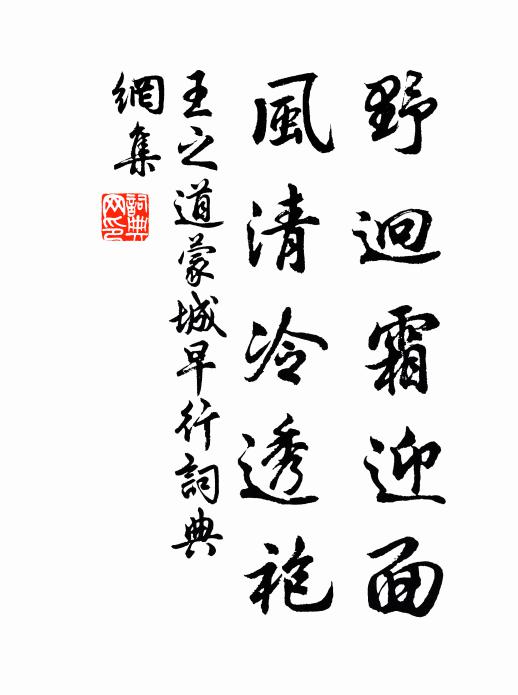 野迥霜迎面
風清冷透袍
王之道蒙城早行詞典
網集
詞典
网印